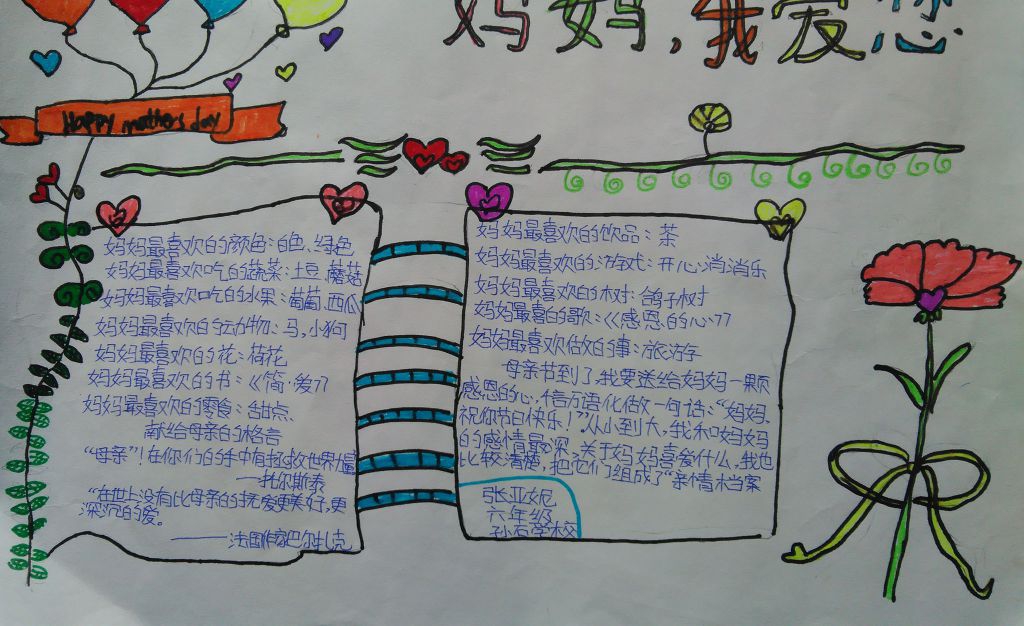 妈妈,我爱您
Happy mothers day
妈妈最喜欢的颜色:白色、绿色
妈妈最喜欢吃的蔬菜:土豆,蘑菇
妈妈最喜欢吃的水果:葡萄、西瓜
妈妈最喜欢的动物:马,小狗
妈妈最喜欢的花:荷花
妈妈最喜欢的书:《简·爱》
妈妈最喜欢的零食:甜点
献给母亲的格言
“母亲”!在你们的手中有拯救世界
—托尔斯泰
“在世上没有比母亲的抚爱更美好,更
深沉的爱。
——法国作家巴尔扎克
妈妈最喜欢的饮品:茶
妈妈最喜欢的游戏:开心消消乐
妈妈最喜欢的树:鸽子树
妈妈最喜的歌:《感恩的心》
妈妈最喜欢做的事:旅游
母亲节到了,我要送给妈妈一颗
感恩的心,千言万语化做一句话:“妈妈,
祝你节日快乐!”从小到大,我和妈妈
的感情最深,关于妈妈喜爱什么,我也
比较清楚,把它们组成了“亲情档案
张亚妮
六年级
孙石学校